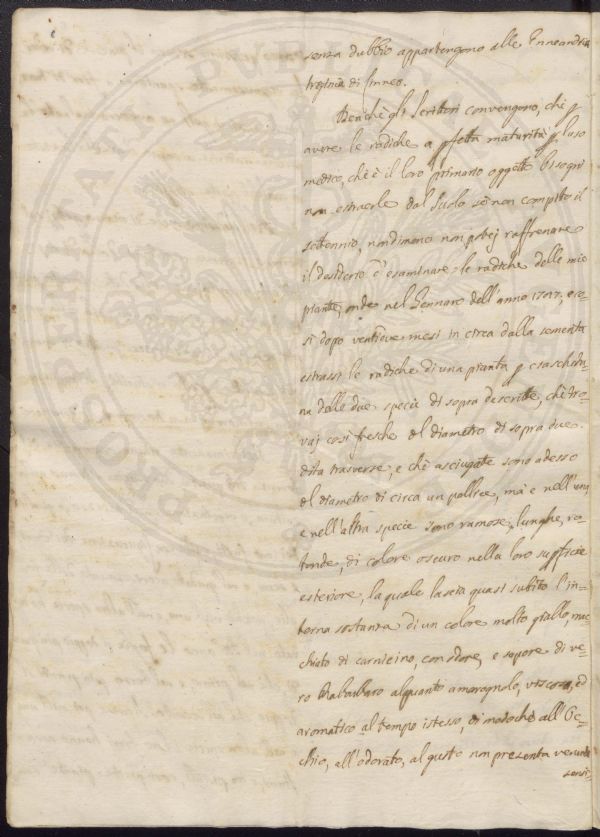 senza dubbio appartengono alle Enneandria
triginia di Linneo.
Benchè gli Scrittori convengono, chè p
avere le radiche a pfetta maturità p luso
medico, chè è il loro primario oggetto bisogni
non estraerle dal Suolo sè non compito il
settennio, nondimeno non potej raffrenare
il desiderio d'esaminare le radiche delle mie
piante, onde nel Gennaro dell'anno 1787, e co-
sì dopo ventinove mesi in circa dalla sementa
estrassi le radiche di una pianta p ciascheu-
na delle due specie di sopra descritte, chè tro-
vaj così fresche del diametro di sopra due
dita trasverse, e chè asciugate sono adesso
del diametro di circa un pollice, mà e nell'una
e nell'altra specie sono ramose, lunghe, ro-
tonde, di colore oscuro nella loro supficie
esteriore, la quale lascia quasi subito l'in-
terna sostanza di un colore molto giallo, mac-
chiato di carnicino, con odore, e sapore di ve-
ro Rabarbaro alquanto amarognolo, viscoso, ed
aromatico al tempo istesso, di modochè all'Oc-
chio, all'odorato, al gusto non presenta veruna
sensi-
PROSPERITATI PUBLICAE